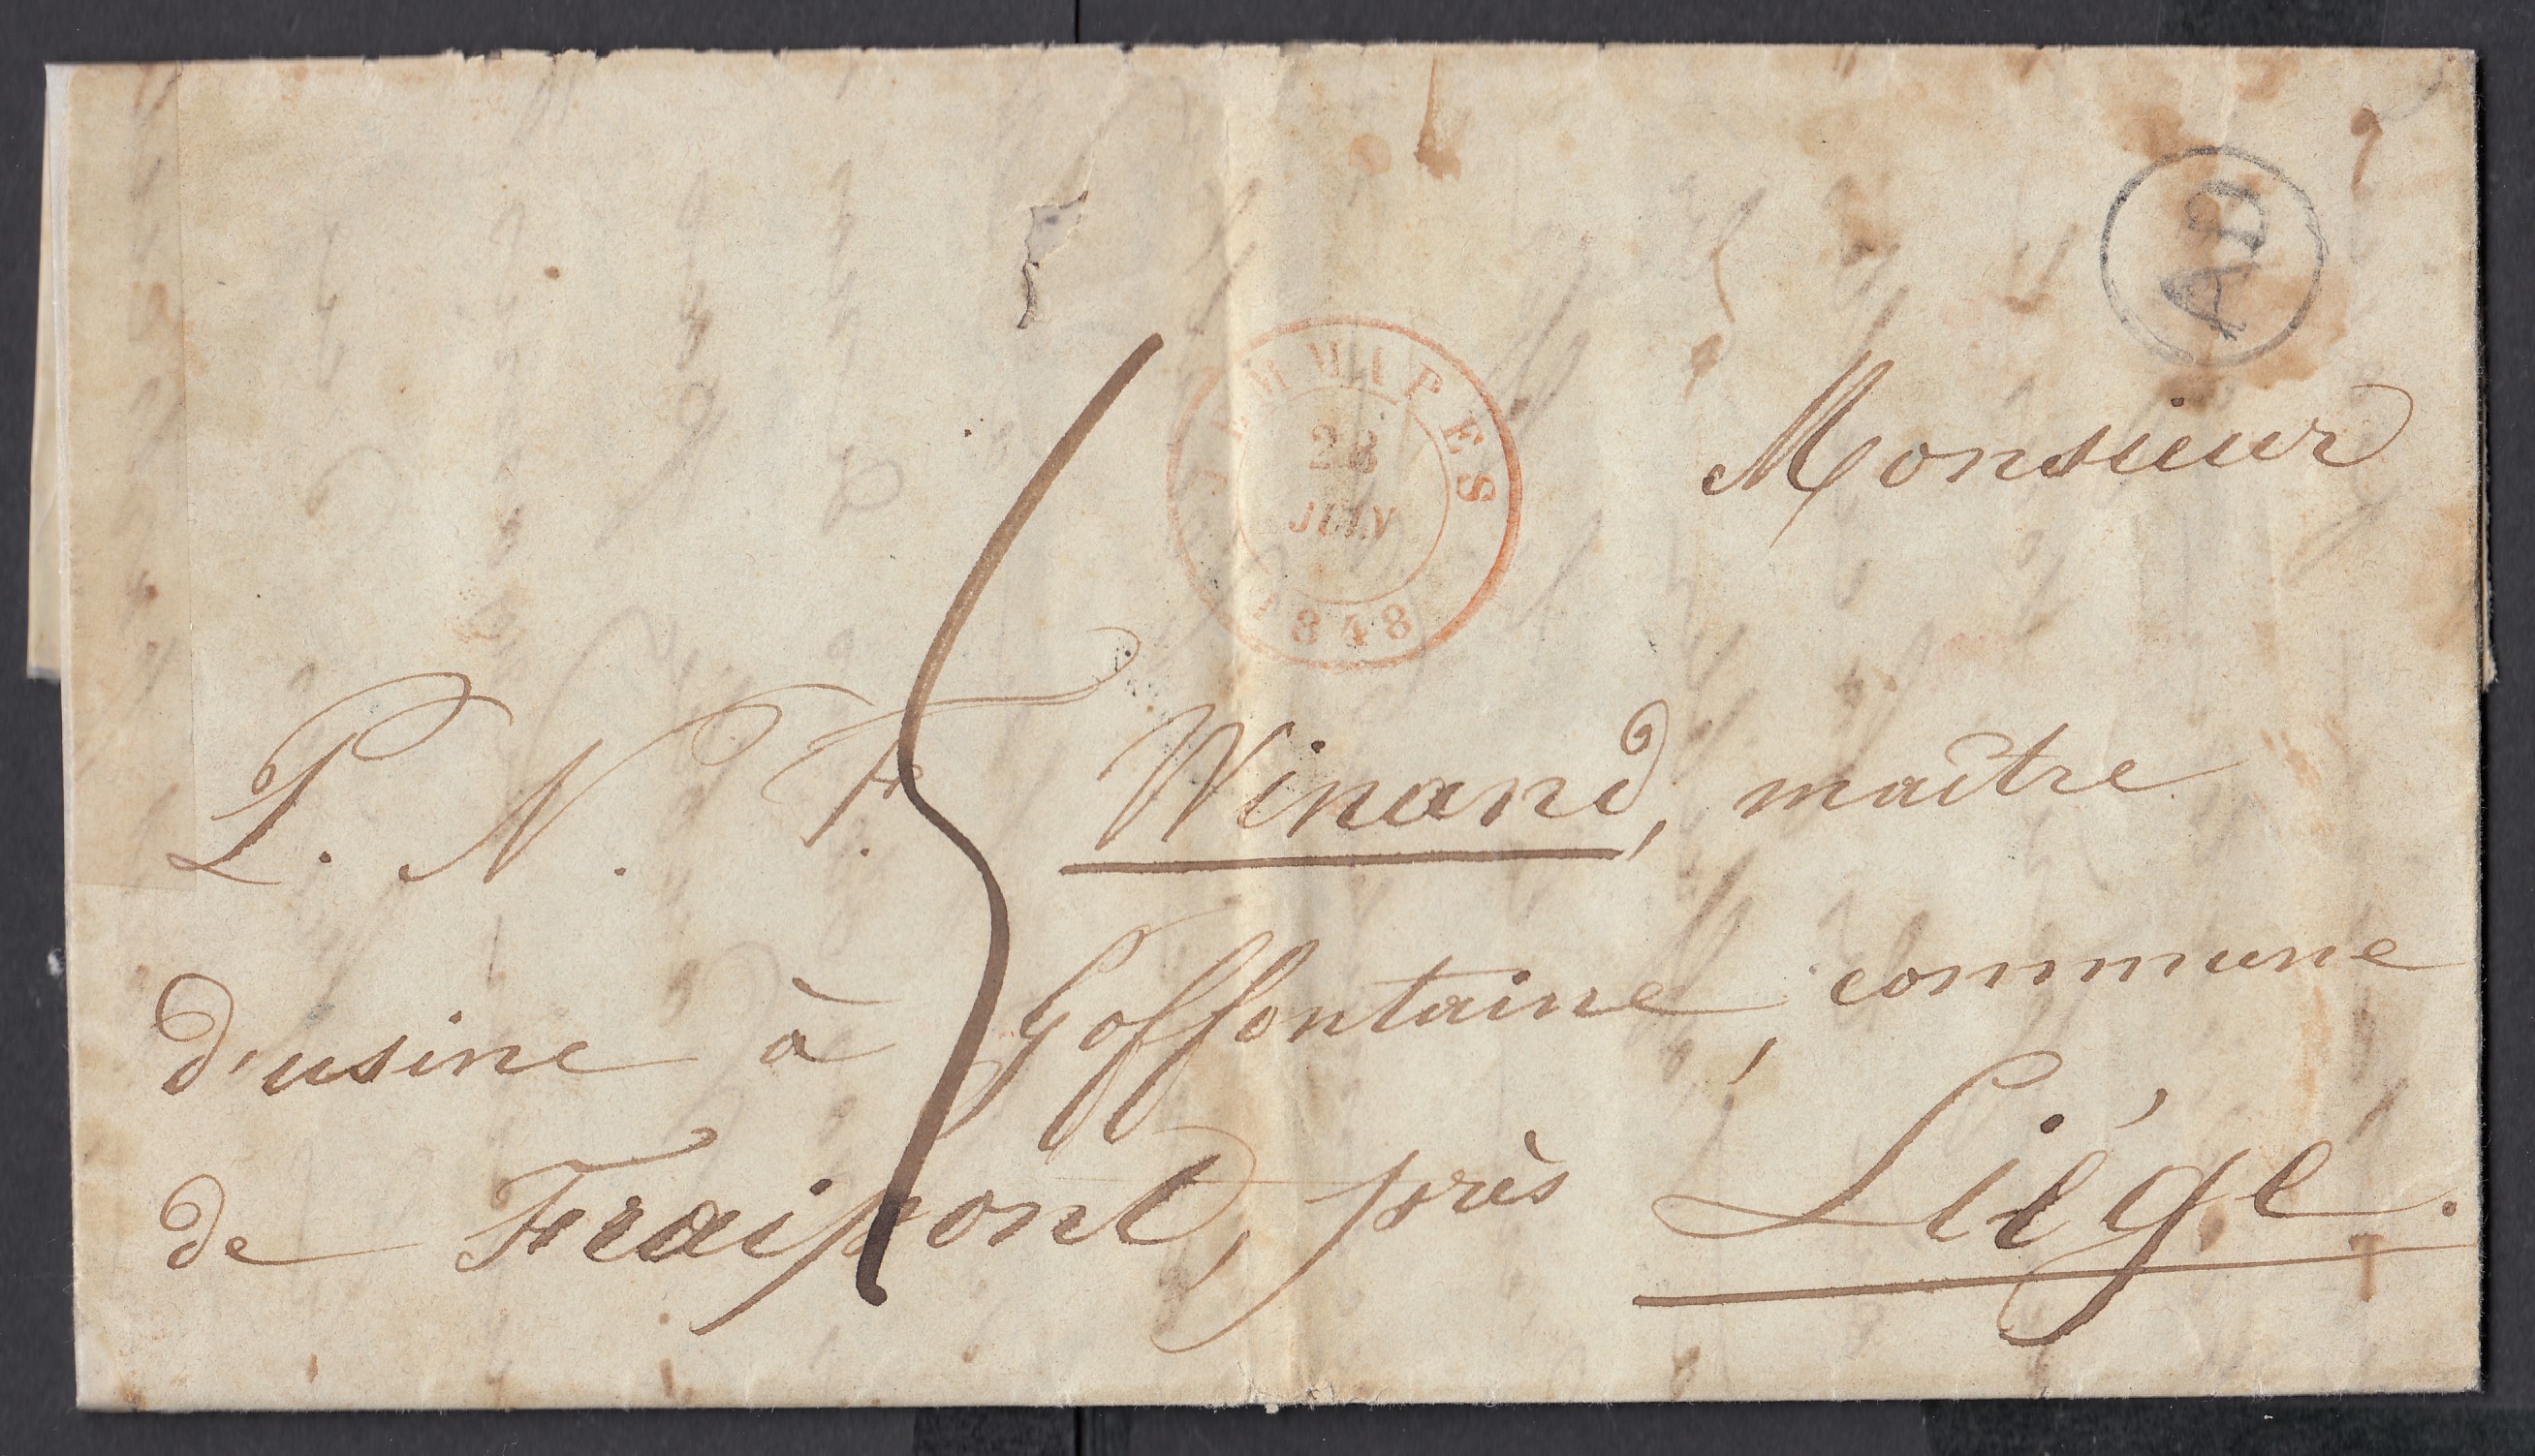 AD
JEMMAPES
28
JUIN
1848
5
Monsieur
L. N. F. Winand, maître
d'usine à Goffontaine, commune
de Fraipont, près Liége.